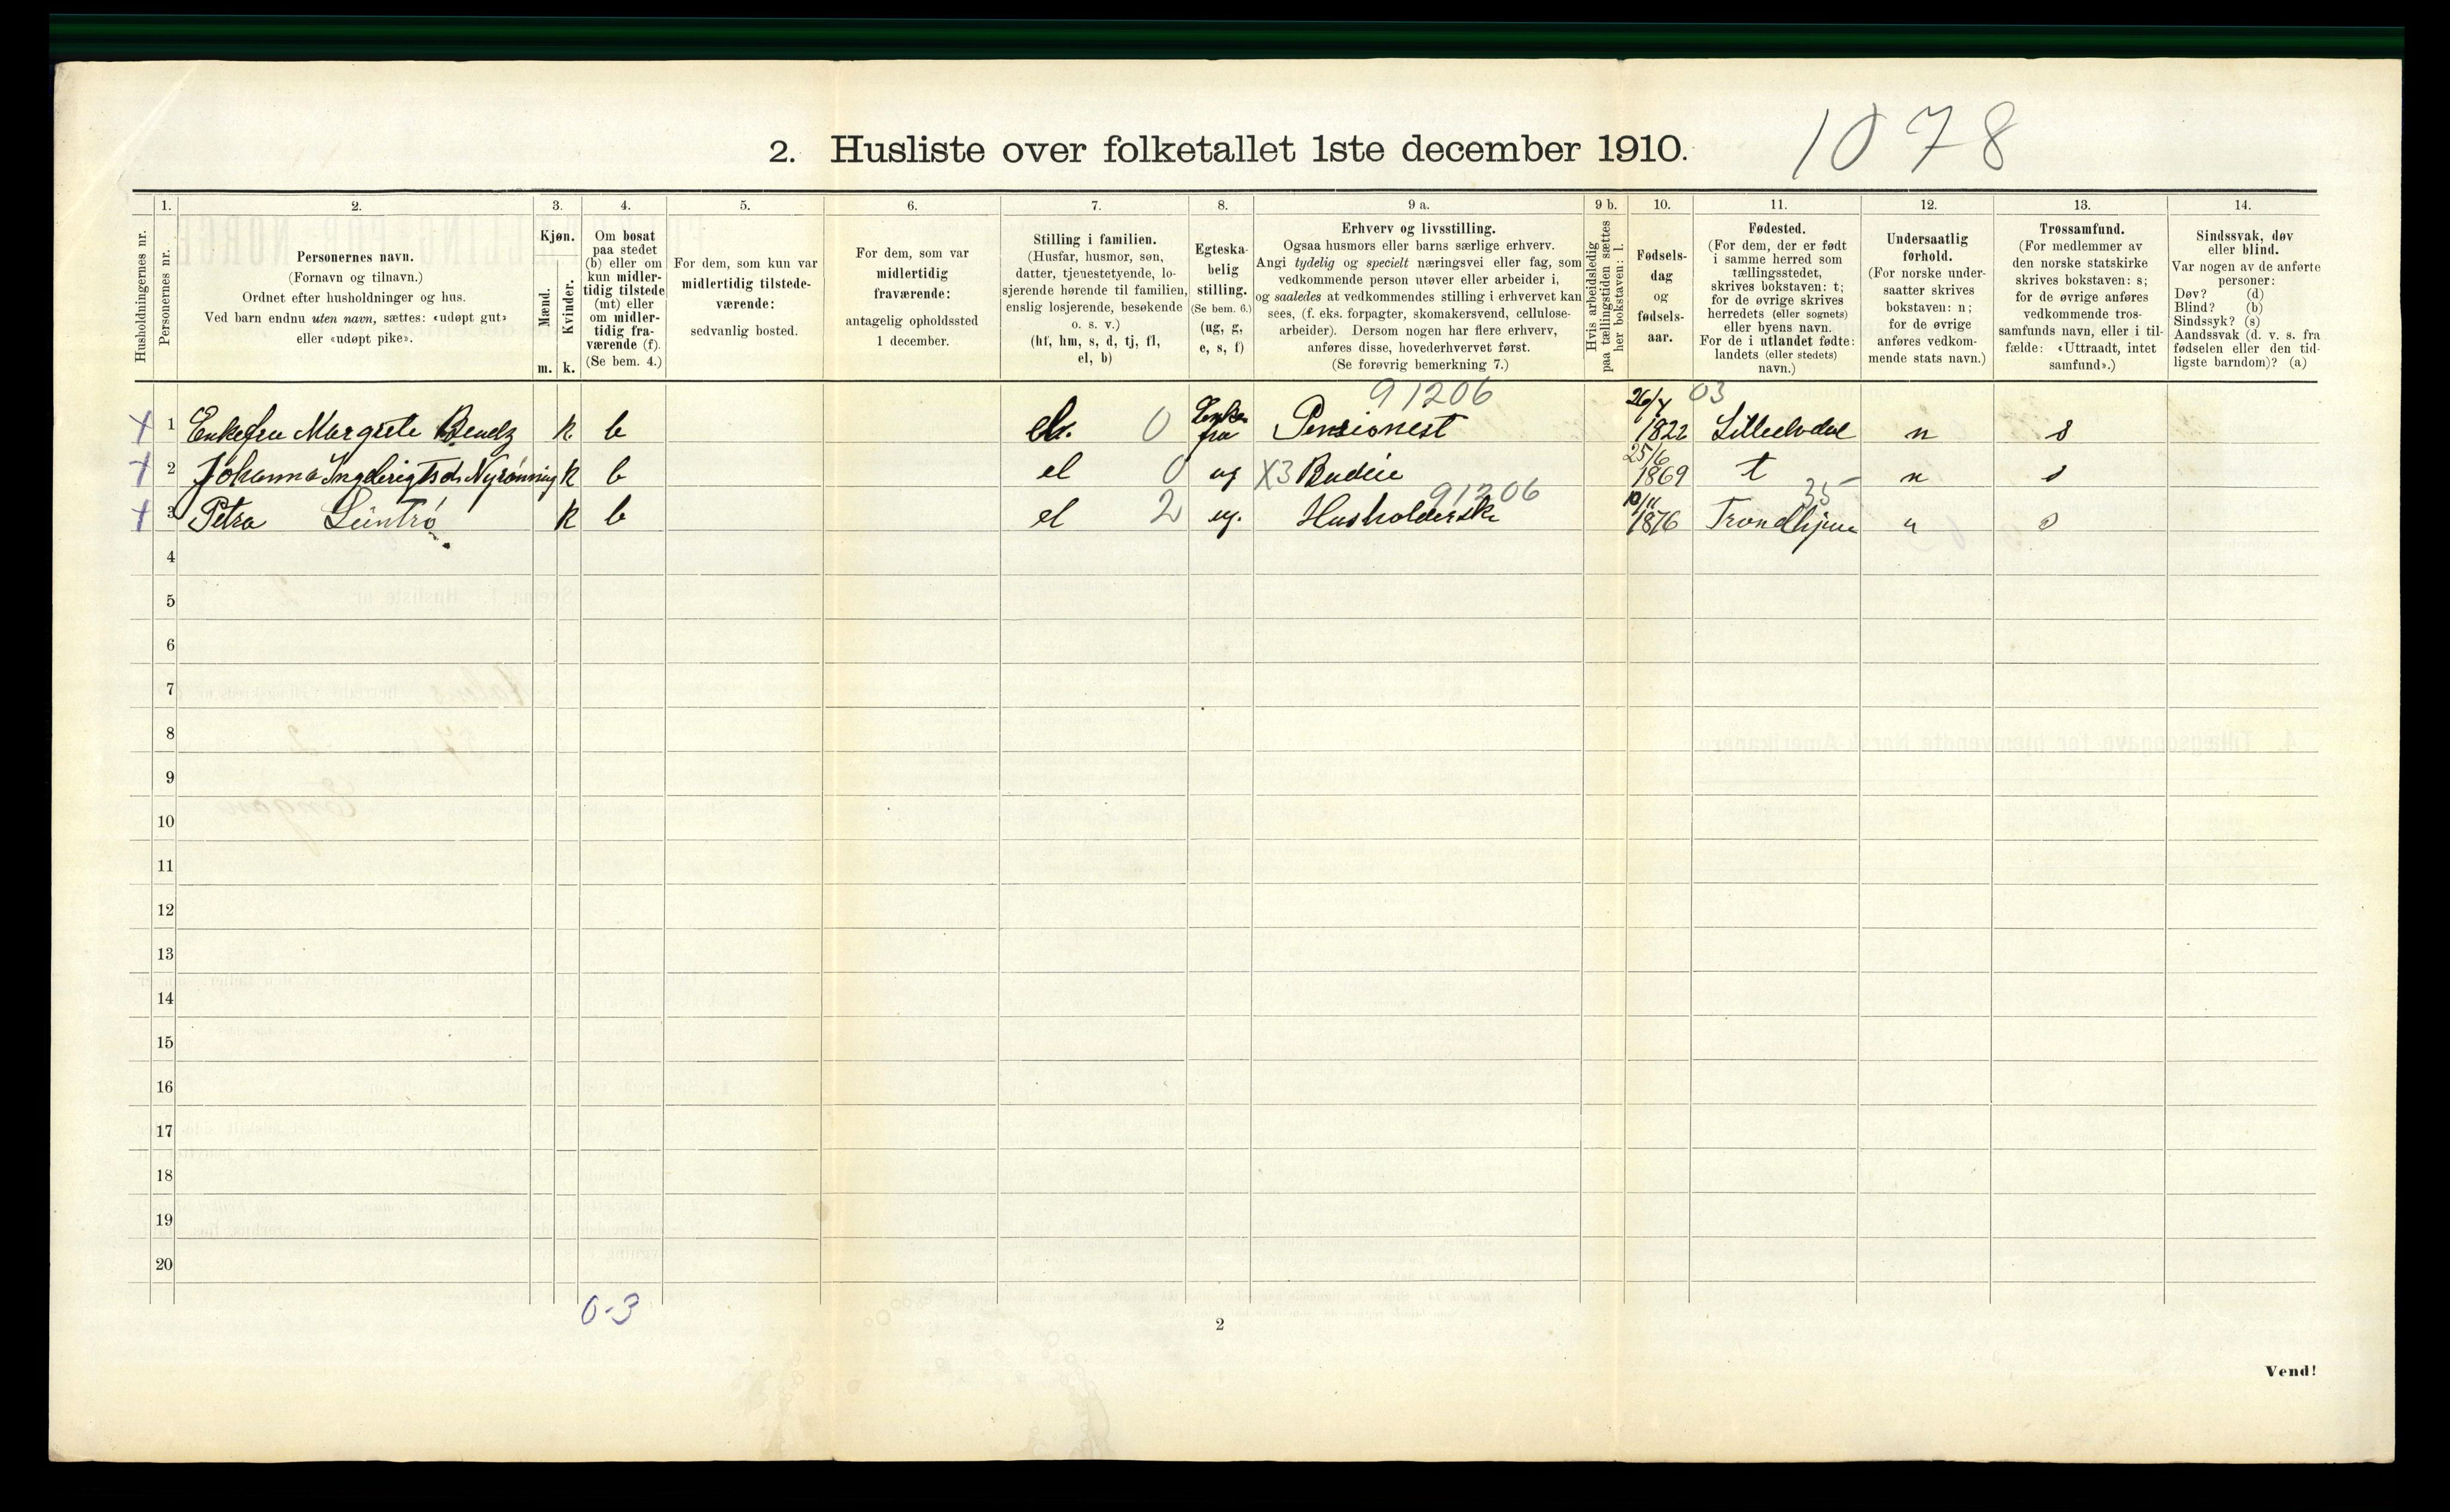 2. Husliste over folketallet 1ste december 1910.
1078
Husholdningernes nr.
1.
Personernes nr.
2.
Personernes navn.
(Fornavn og tilnavn.)
Ordnet efter husholdninger og hus.
Ved barn endnu uten navn, sættes: «udøpt gut»
eller «udøpt pike».
3.
Kjøn.
Mænd.
Kvinder.
m. k.
4.
Om bosat
paa stedet
(b) eller om
kun midler-
tidig tilstede
(mt) eller
om midler-
tidig fra-
værende (f).
(Se bem. 4.)
5.
For dem, som kun var
midlertidig tilstede-
værende:
sedvanlig bosted.
6.
For dem, som var
midlertidig
fraværende:
antagelig opholdssted
1 december.
7.
Stilling i familien.
(Husfar, husmor, søn,
datter, tjenestetyende, lo-
sjerende hørende til familien,
enslig losjerende, besøkende
o. s. v.)
(hf, hm, s, d, tj, fl,
el, b)
8.
Egteska-
belig
stilling.
(Se bem. 6.)
(ug, g,
e, s, f)
9 a.
Erhverv og livsstilling.
Ogsaa husmors eller barns særlige erhverv.
Angi tydelig og specielt næringsvei eller fag, som
vedkommende person utøver eller arbeider i,
og saaledes at vedkommendes stilling i erhvervet kan
sees, (f. eks. forpagter, skomakersvend, cellulose-
arbeider). Dersom nogen har flere erhverv,
anføres disse, hovederhvervet først.
(Se forøvrig bemerkning 7.)
9 b.
Hvis arbeidsledig
paa tællingstiden sættes
her bokstaven: l.
10.
Fødsels-
dag
og
fødsels-
aar.
11.
Fødested.
(For dem, der er født
i samme herred som
tællingsstedet,
skrives bokstaven: t;
for de øvrige skrives
herredets (eller sognets)
eller byens navn.
For de i utlandet fødte:
landets (eller stedets)
navn.)
12.
Undersaatlig
forhold.
(For norske under-
saatter skrives
bokstaven: n;
for de øvrige
anføres vedkom-
mende stats navn.)
13.
Trossamfund.
(For medlemmer av
den norske statskirke
skrives bokstaven: s;
for de øvrige anføres
vedkommende tros-
samfunds navn, eller i til-
fælde: «Uttraadt, intet
samfund».)
14.
Sindssvak, døv
eller blind.
Var nogen av de anførte
personer:
Døv? (d)
Blind? (b)
Sindssyk? (s)
Aandssvak (d. v. s. fra
fødselen eller den tid-
ligste barndom)? (a)
91206 26/4 03
1 Enkefru Margrete k. b el. 0 Enke fru Pensionest 1822 Lilleelvdal n s
2 Johanna k b el 0 ug X3 Budeie 25/6 1869 t n s
91206 35
3 Petra k b el 2 ug. Husholderske 1876 Trondhjem n s
4
5
6
7
8
9
10
11
12
13
14
15
16
17
18
19
20
0-3
2
Vend!